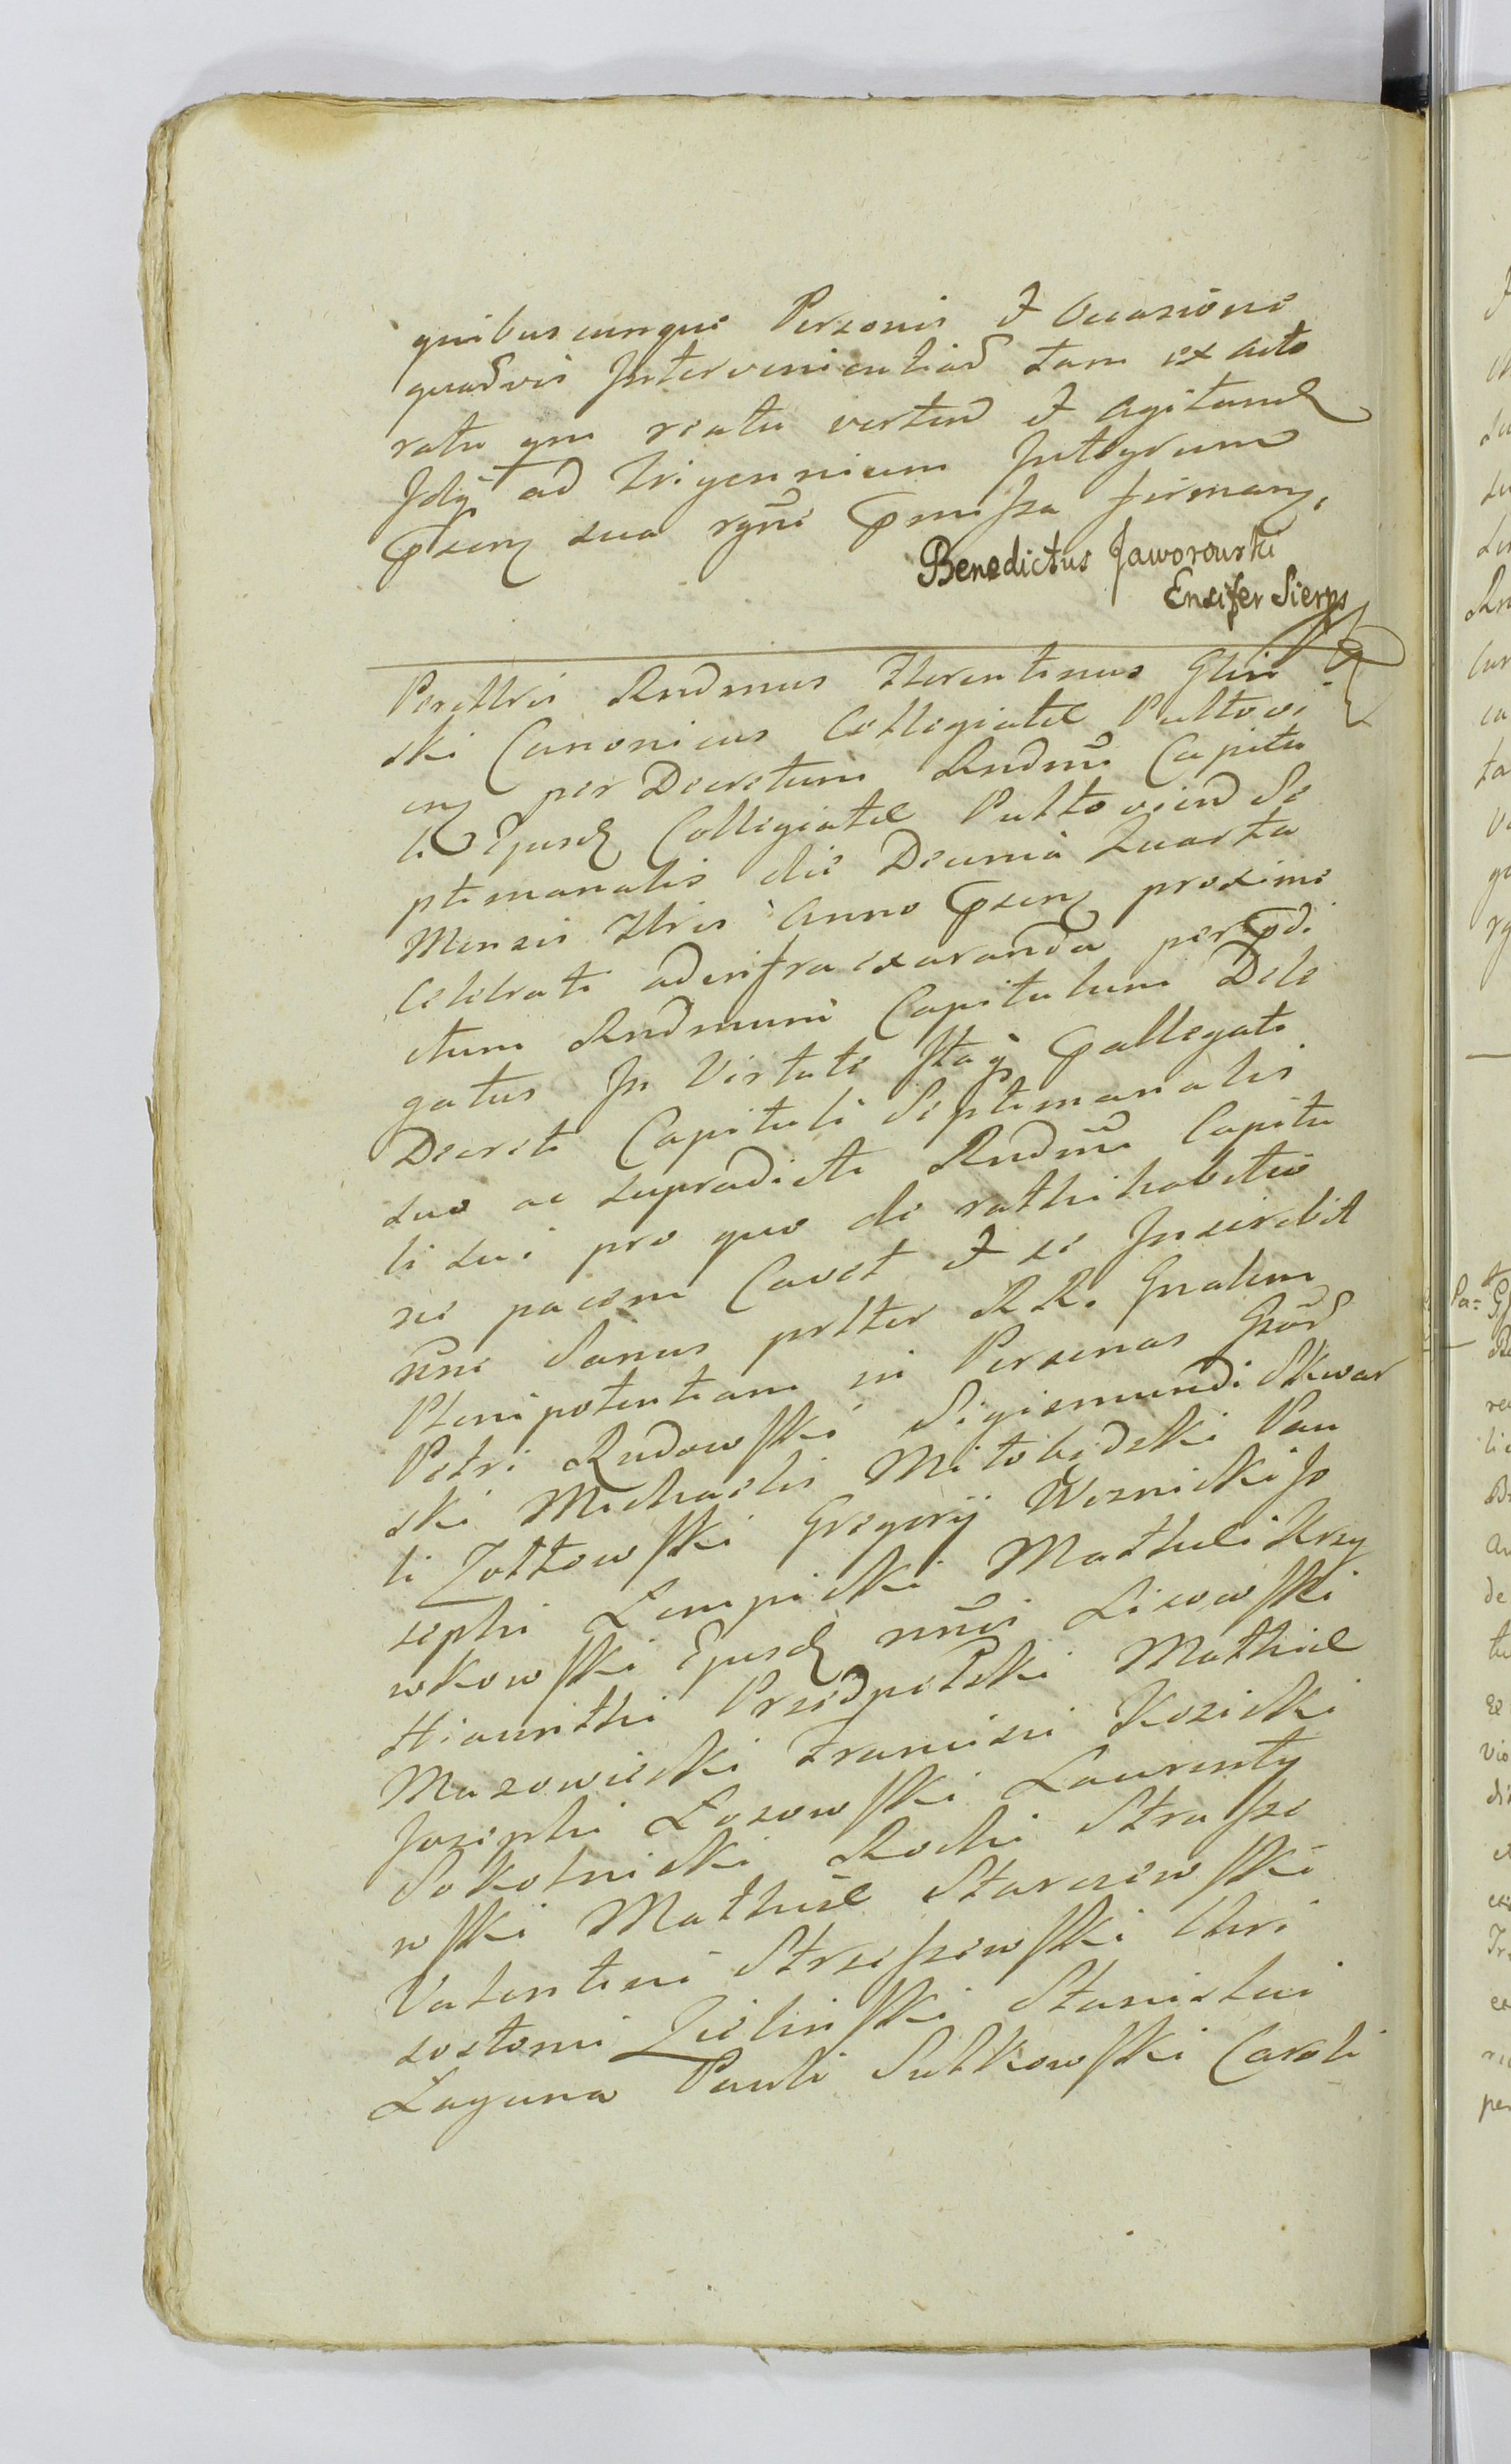 quibuscunque Personis et Occasione
quadvis Intervenientiad tam ex acto
ratu qm reatu verten et Agitand
Idq ad Trigennium Integrum
Psenq sua rgni Pmissa firmanq.
Benedictus Jaworowski
Ensifer Sierps
Perillris Rndmus Florentinus Glin
ski Canonicus Collegiatæ Pultovi
enq per Decretum Rndmi Capitu
li Ejusd Collegiatæ Pultovien Se
ptimanalis die Decima Quarta
Mensis 7bris Anno Psenq proxime
Celebrati ad infra exaranda per Pdi
ctum Rndmum Capitulum Dele
gatus In Virtute Itaq Pallegati
Decreti Capituli Septimanalis
suo ac supradicti Rndmi Capitu
li sui pro quo de rathihabitio
ne pacem Cavet et se Inscribit
nne Sanus prltter R R. Gnalem
Plenipotentiam in Personas Gsod
Petri Rudowski Sigismundi Skwar
ski Michaelis Milobędzki Pau
li Żółtowski Gregorij Woznicki Jo
sephi Lempicki Mathei Krzy
wkowski Ejusd nnis Lisowski
Hiacinthi Przedpelski Mathiæ
Mazowiecki Francisci Kosicki
Josephi Łosowski Laurenty
Sokolnicki Rochi Strasze
wski Mathiæ Starczewski
Valentini Strzeszewski Chri
sostomi Zielinski Stanislai
Laguna Pauli Sulkowski Caroli